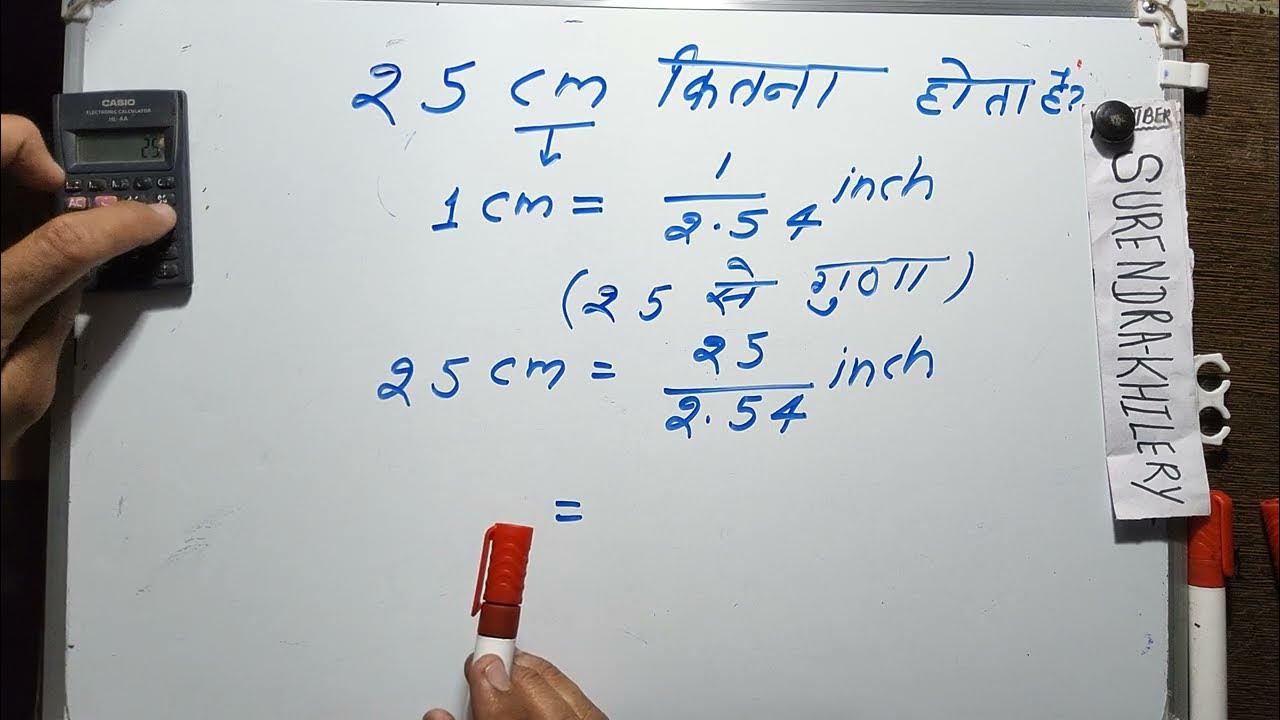 25 cm कितना होता है?
1 cm = 1/2.54 inch
(25 से गुणा)
25 cm = 25/2.54 inch
=
CASIO
ELECTRONIC CALCULATOR
HL-4A
25
AC
SURENDRAKHILERY